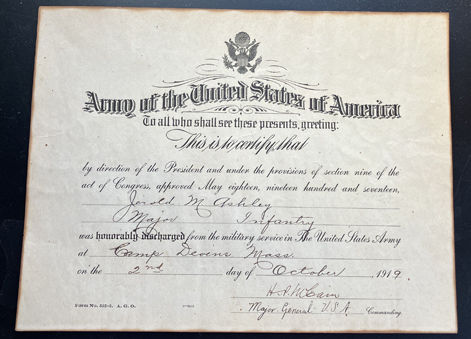 Army of the United States of America
To all who shall see these presents, greeting:
This is to certify, that
by direction of the President and under the provisions of section nine of the
act of Congress, approved May eighteen, nineteen hundred and seventeen,
Jerold M Ashley
Major Infantry
was honorably discharged from the military service in The United States Army
at Camp Devens Mass.
on the 2nd day of October 1919
H.P. McCain
Major General U.S.A. Commanding.
Form No. A. G. O.